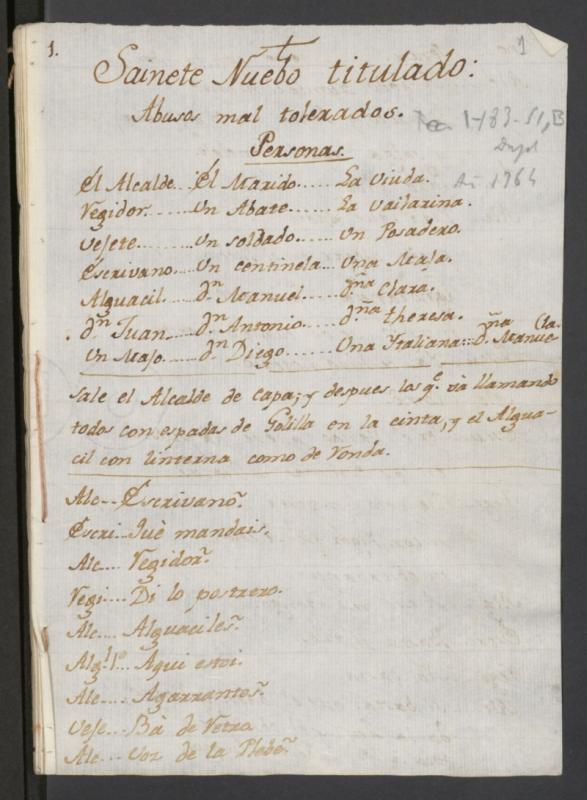 1. 1
Sainete Nuebo titulado:
Abusos mal tolerados.
Tea 1-183-51, B
Personas.
Él Alcalde... Él Marido..... La Viuda.
Aº 1764
Vegidor..... Un Abate...... La Vailarina.
Vejete........ Un soldado...... Un Posadero.
Éscrivano... Un centinela... Una Maja.
Alguacil..... dⁿ Manuel..... dña Clara.
dⁿ Juan..... dⁿ Antonio..... dña theresa.
Un Majo..... dⁿ Diego...... Una Italiana... dña Manue-
la.
Sale el Alcalde de capa; y despues los qᵉ và llamando
todos con espadas de Golilla en la cinta, y el Algua-
cil con linterna como de Vonda.
Alc... Éscrivano?
Éscri... Què mandais.
Alc.... Vegidor?
Vegi.... Di lo postrero.
Alc.... Alguaciles?
Algˡ 1º Aqui estoi.
Alc.... Agarrantes?
Veje... Bà de Vetro
Alc... Voz de la Plebe?